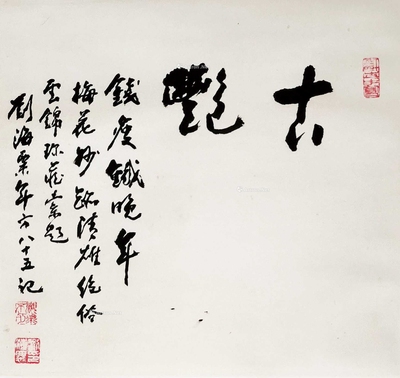 古艷
錢瘦鐵晚年
梅花妙跡清雄絕俗
雲錦珍藏索題
劉海粟年方八十五記